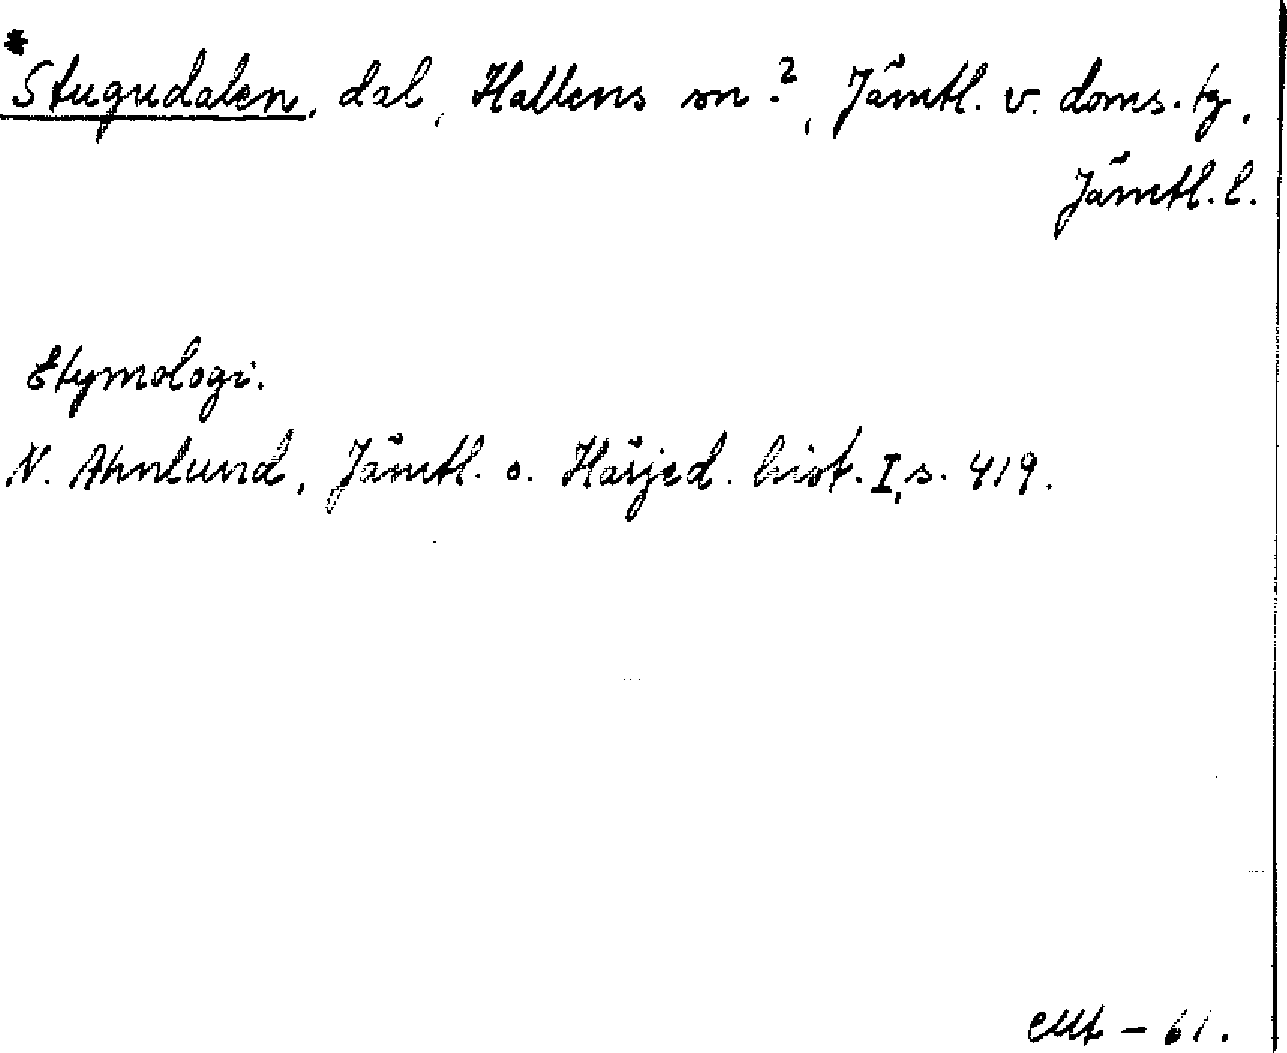 *Stugudalen, dal, Hallens sn?, Jämtl. v. doms. tg.
Jämtl. l.
Etymologi.
N. Ahnlund, Jämtl. o. Härjed. hist. I, s. 419.
– 61.